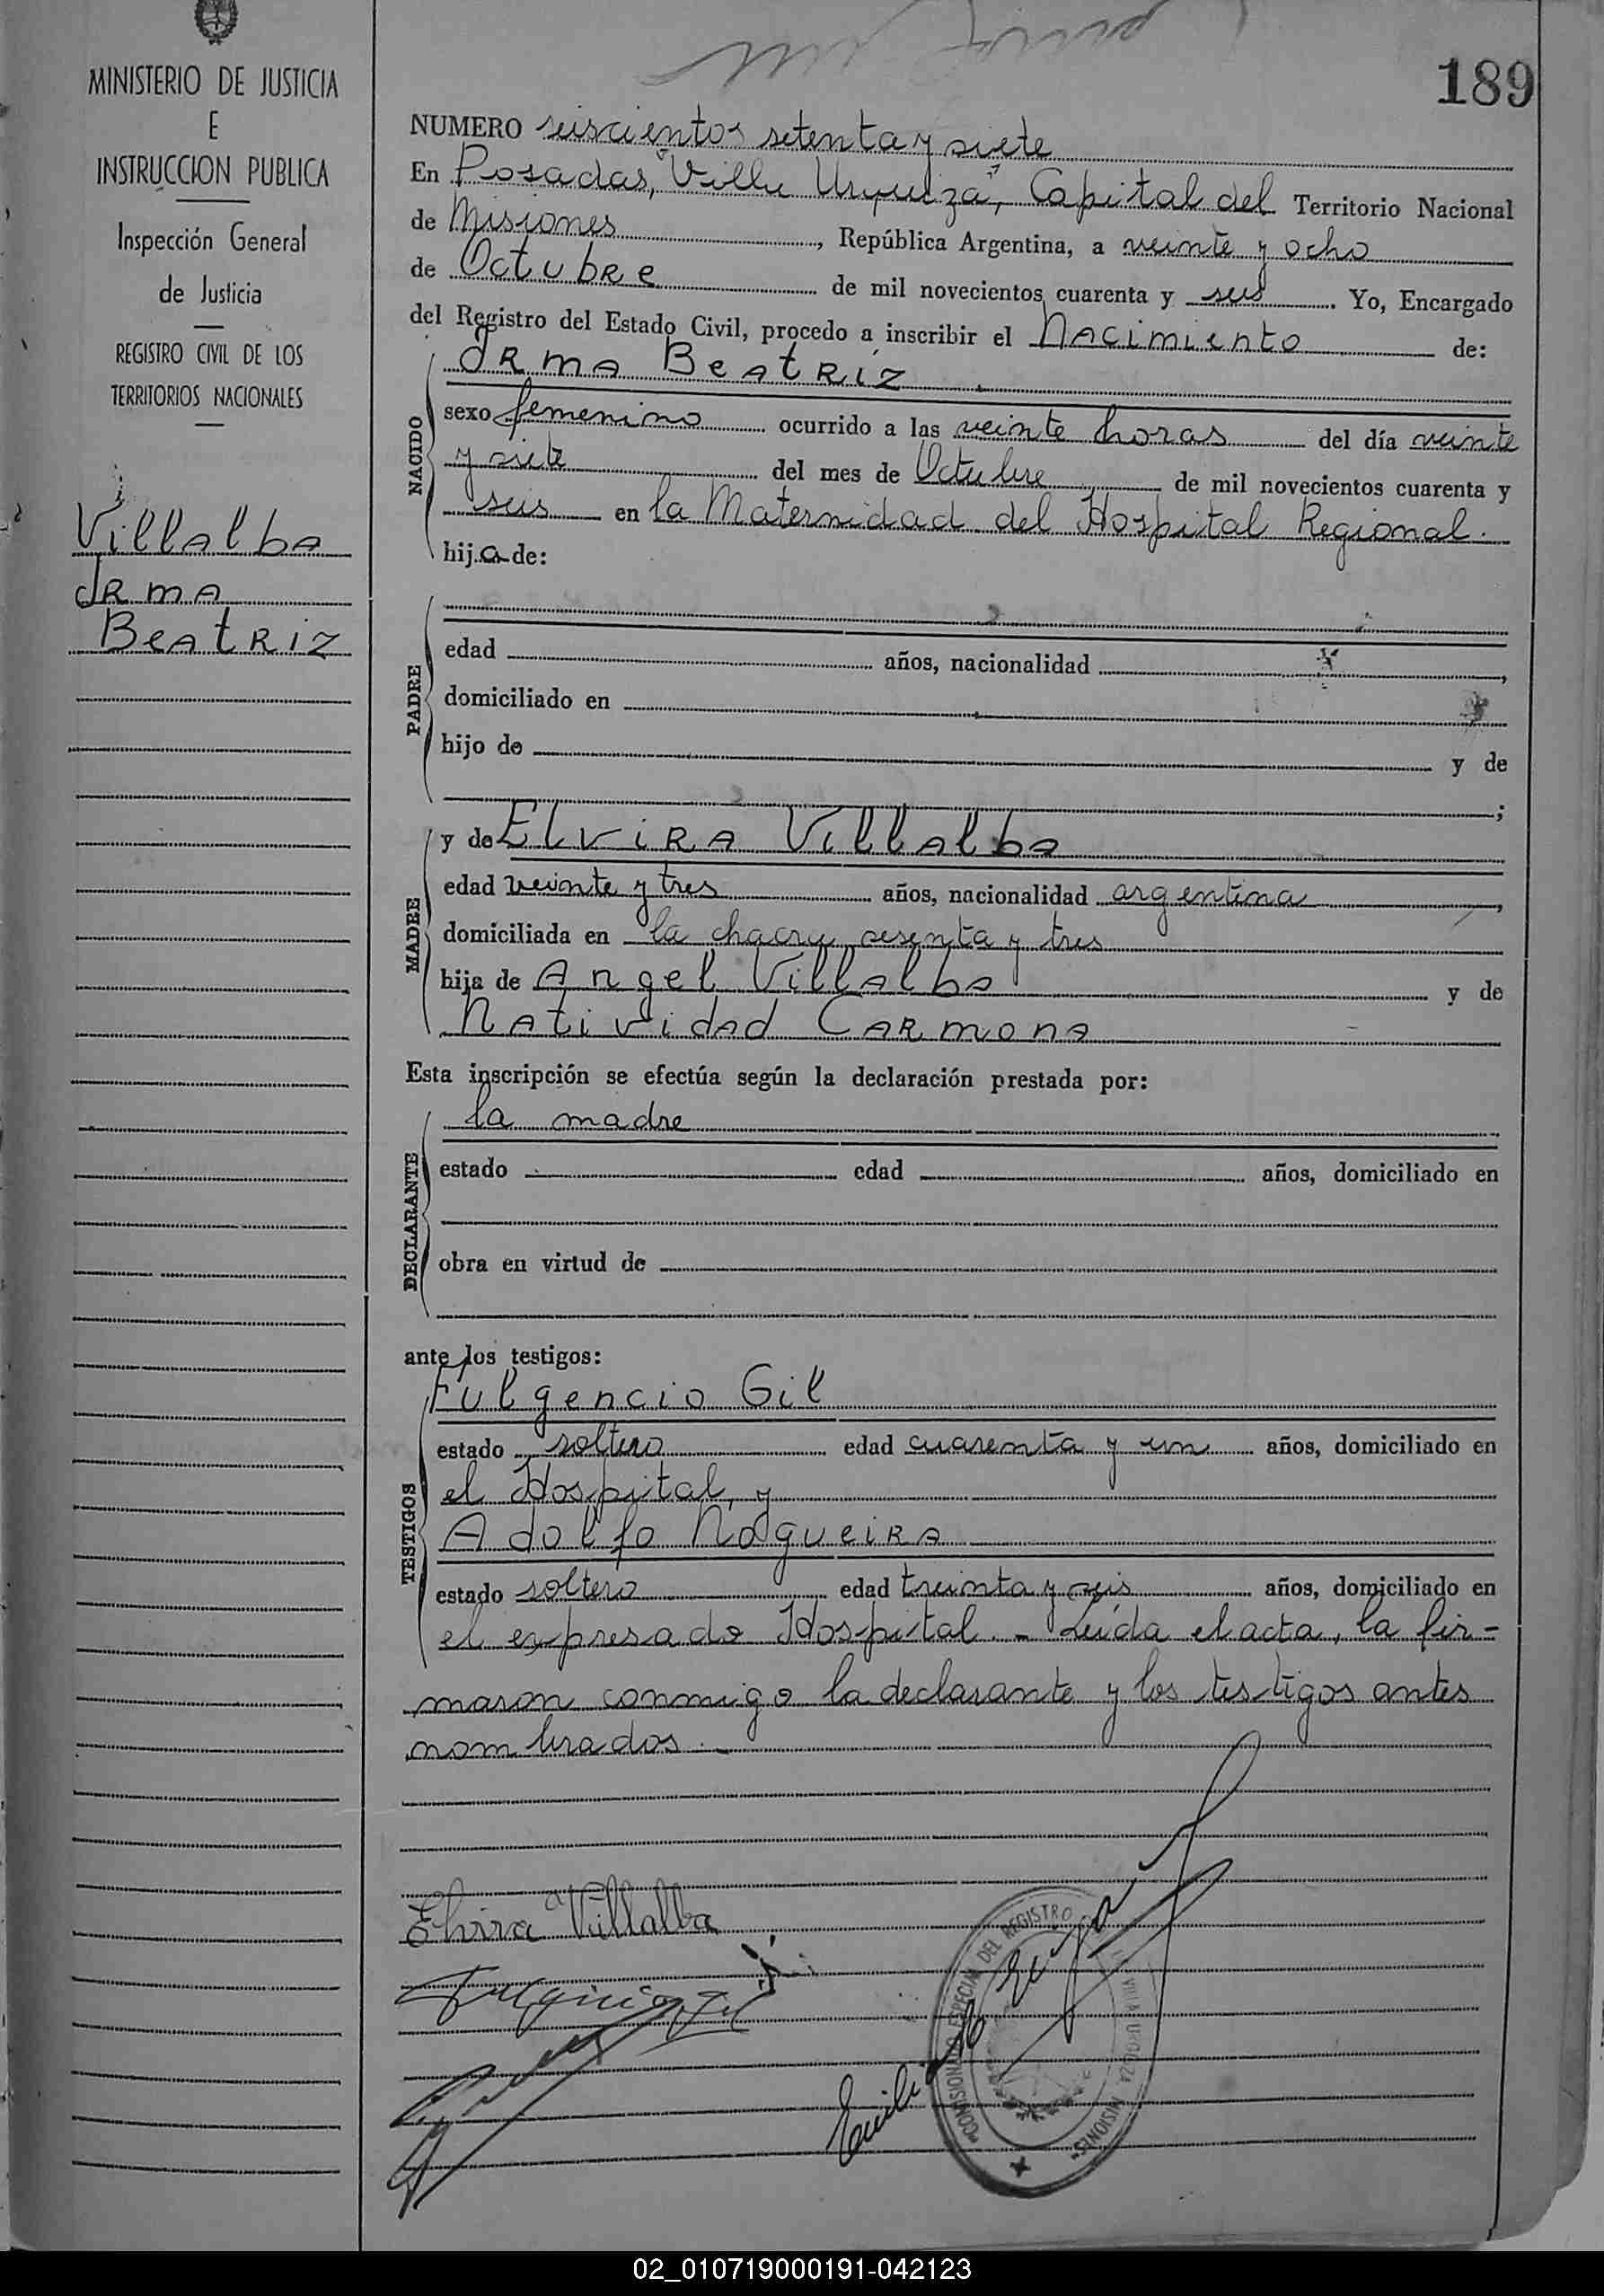 MINISTERIO DE JUSTICIA
E
INSTRUCCION PUBLICA
Inspección General
de Justicia
REGISTRO CIVIL DE LOS
TERRITORIOS NACIONALES
Villalba
Irma
Beatriz
189
NUMERO seiscientos setenta y siete
En Posadas, "Villa Urquiza", Capital del Territorio Nacional
de Misiones, República Argentina, a veinte y ocho
de Octubre de mil novecientos cuarenta y seis. Yo, Encargado
del Registro del Estado Civil, procedo a inscribir el Nacimiento de:
NACIDO
Irma Beatríz
sexo femenino ocurrido a las veinte horas del día veinte
y siete del mes de Octubre de mil novecientos cuarenta y
seis en la Maternidad del Hospital Regional.
hija de:
PADRE
edad años, nacionalidad ,
domiciliado en
hijo de y de
;
MADRE
y de Elvira Villalba
edad veinte y tres años, nacionalidad argentina,
domiciliada en la chacra sesenta y tres
hija de Angel Villalba y de
Natividad Carmona
Esta inscripción se efectúa según la declaración prestada por:
DECLARANTE
la madre
estado edad años, domiciliado en
obra en virtud de
ante los testigos:
TESTIGOS
Fulgencio Gil
estado soltero edad cuarenta y un años, domiciliado en
el Hospital, y
Adolfo Nogueira
estado soltero edad treinta y seis años, domiciliado en
el expresado Hospital. - Leída el acta, la fir-
maron conmigo la declarante y los testigos antes
nombrados. -
Elvira Villalba
Fulgencio Gil
COMISIONADO ESPECIAL DEL REGISTRO
VILLA URQUIZA MISIONES
02_010719000191-042123